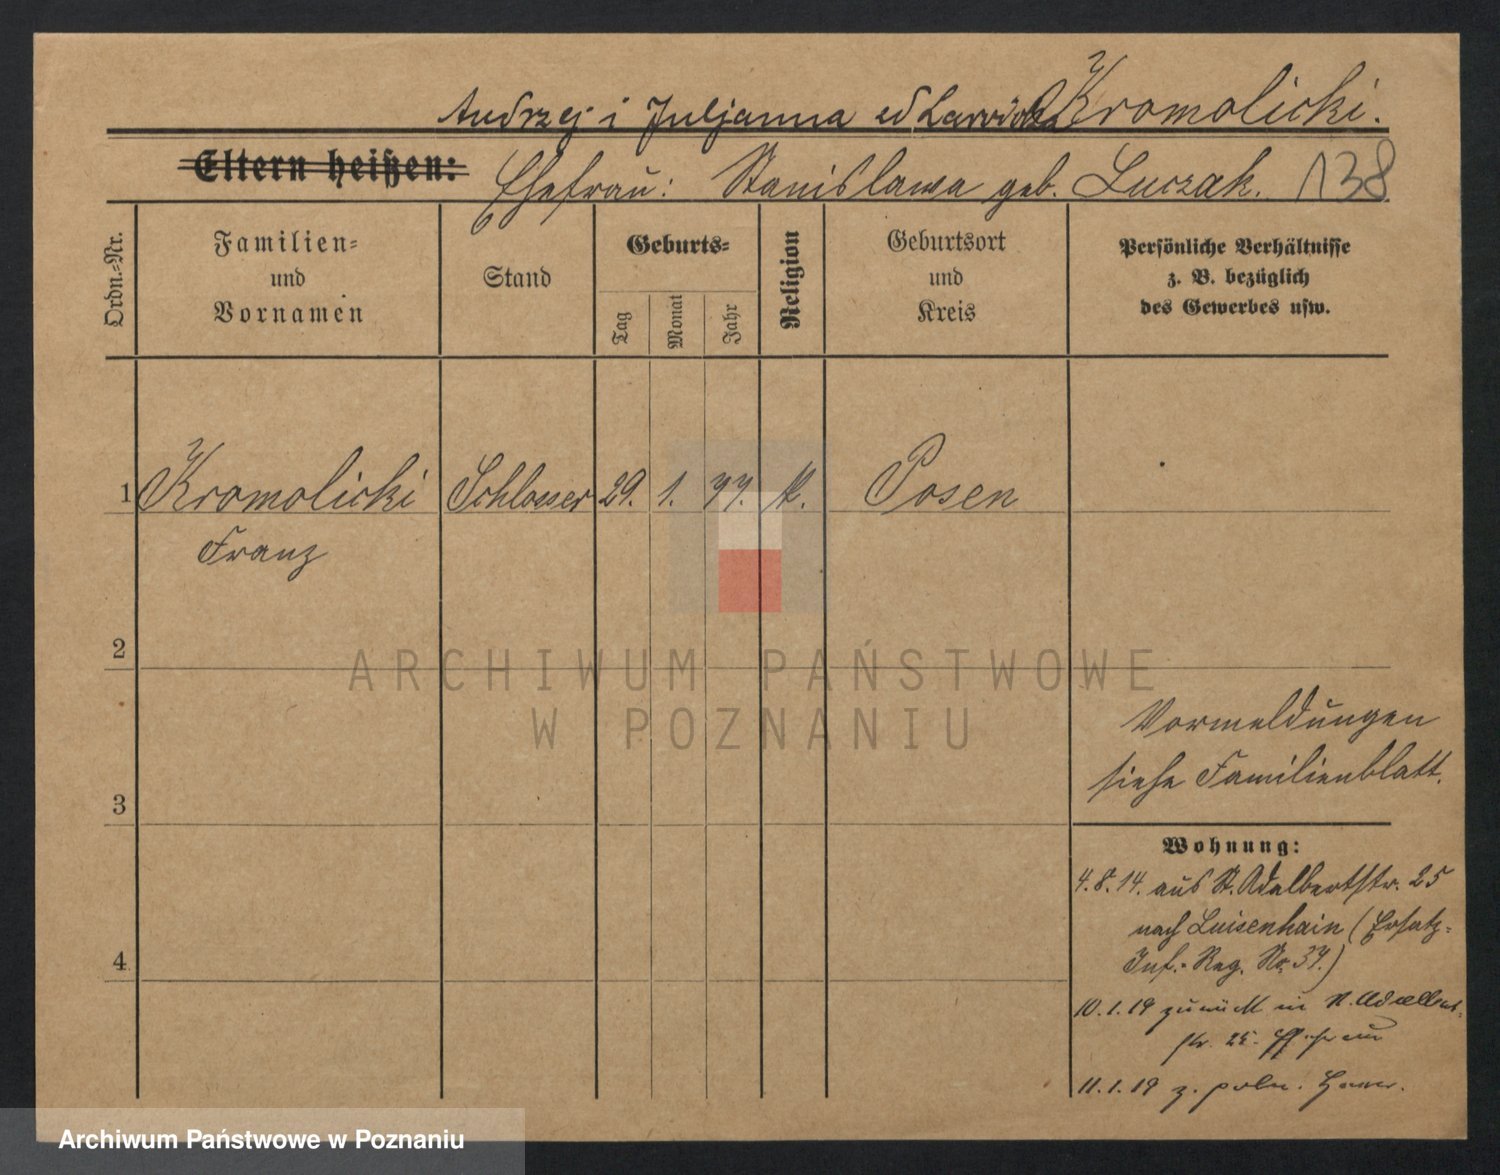 Andrzej i Juljanna Kromolicki.
Eltern heißen:
Ehefrau: Stanislawa geb. Luczak. 138
Ordn.-Nr.
Familien- und Vornamen
Stand
Geburts-
Tag
Monat
Jahr
Religion
Geburtsort und Kreis
Persönliche Verhältnisse
z. B. bezüglich
des Gewerbes usw.
1 Kromolicki Schlosser 29. 1. 77. k. Posen
Franz
2
ARCHIWUM PAŃSTWOWE
W POZNANIU
Vormeldungen
siehe Familienblatt.
3
Wohnung:
4.8.14. aus St. Adalbertstr. 25
nach Luisenhain (Ersatz-
Inf.- Reg. No. 37.)
4
10.1.19 zurück St. Adalbert-
str. 25 Ehefrau
11.1.19 z. poln.
Archiwum Państwowe w Poznaniu